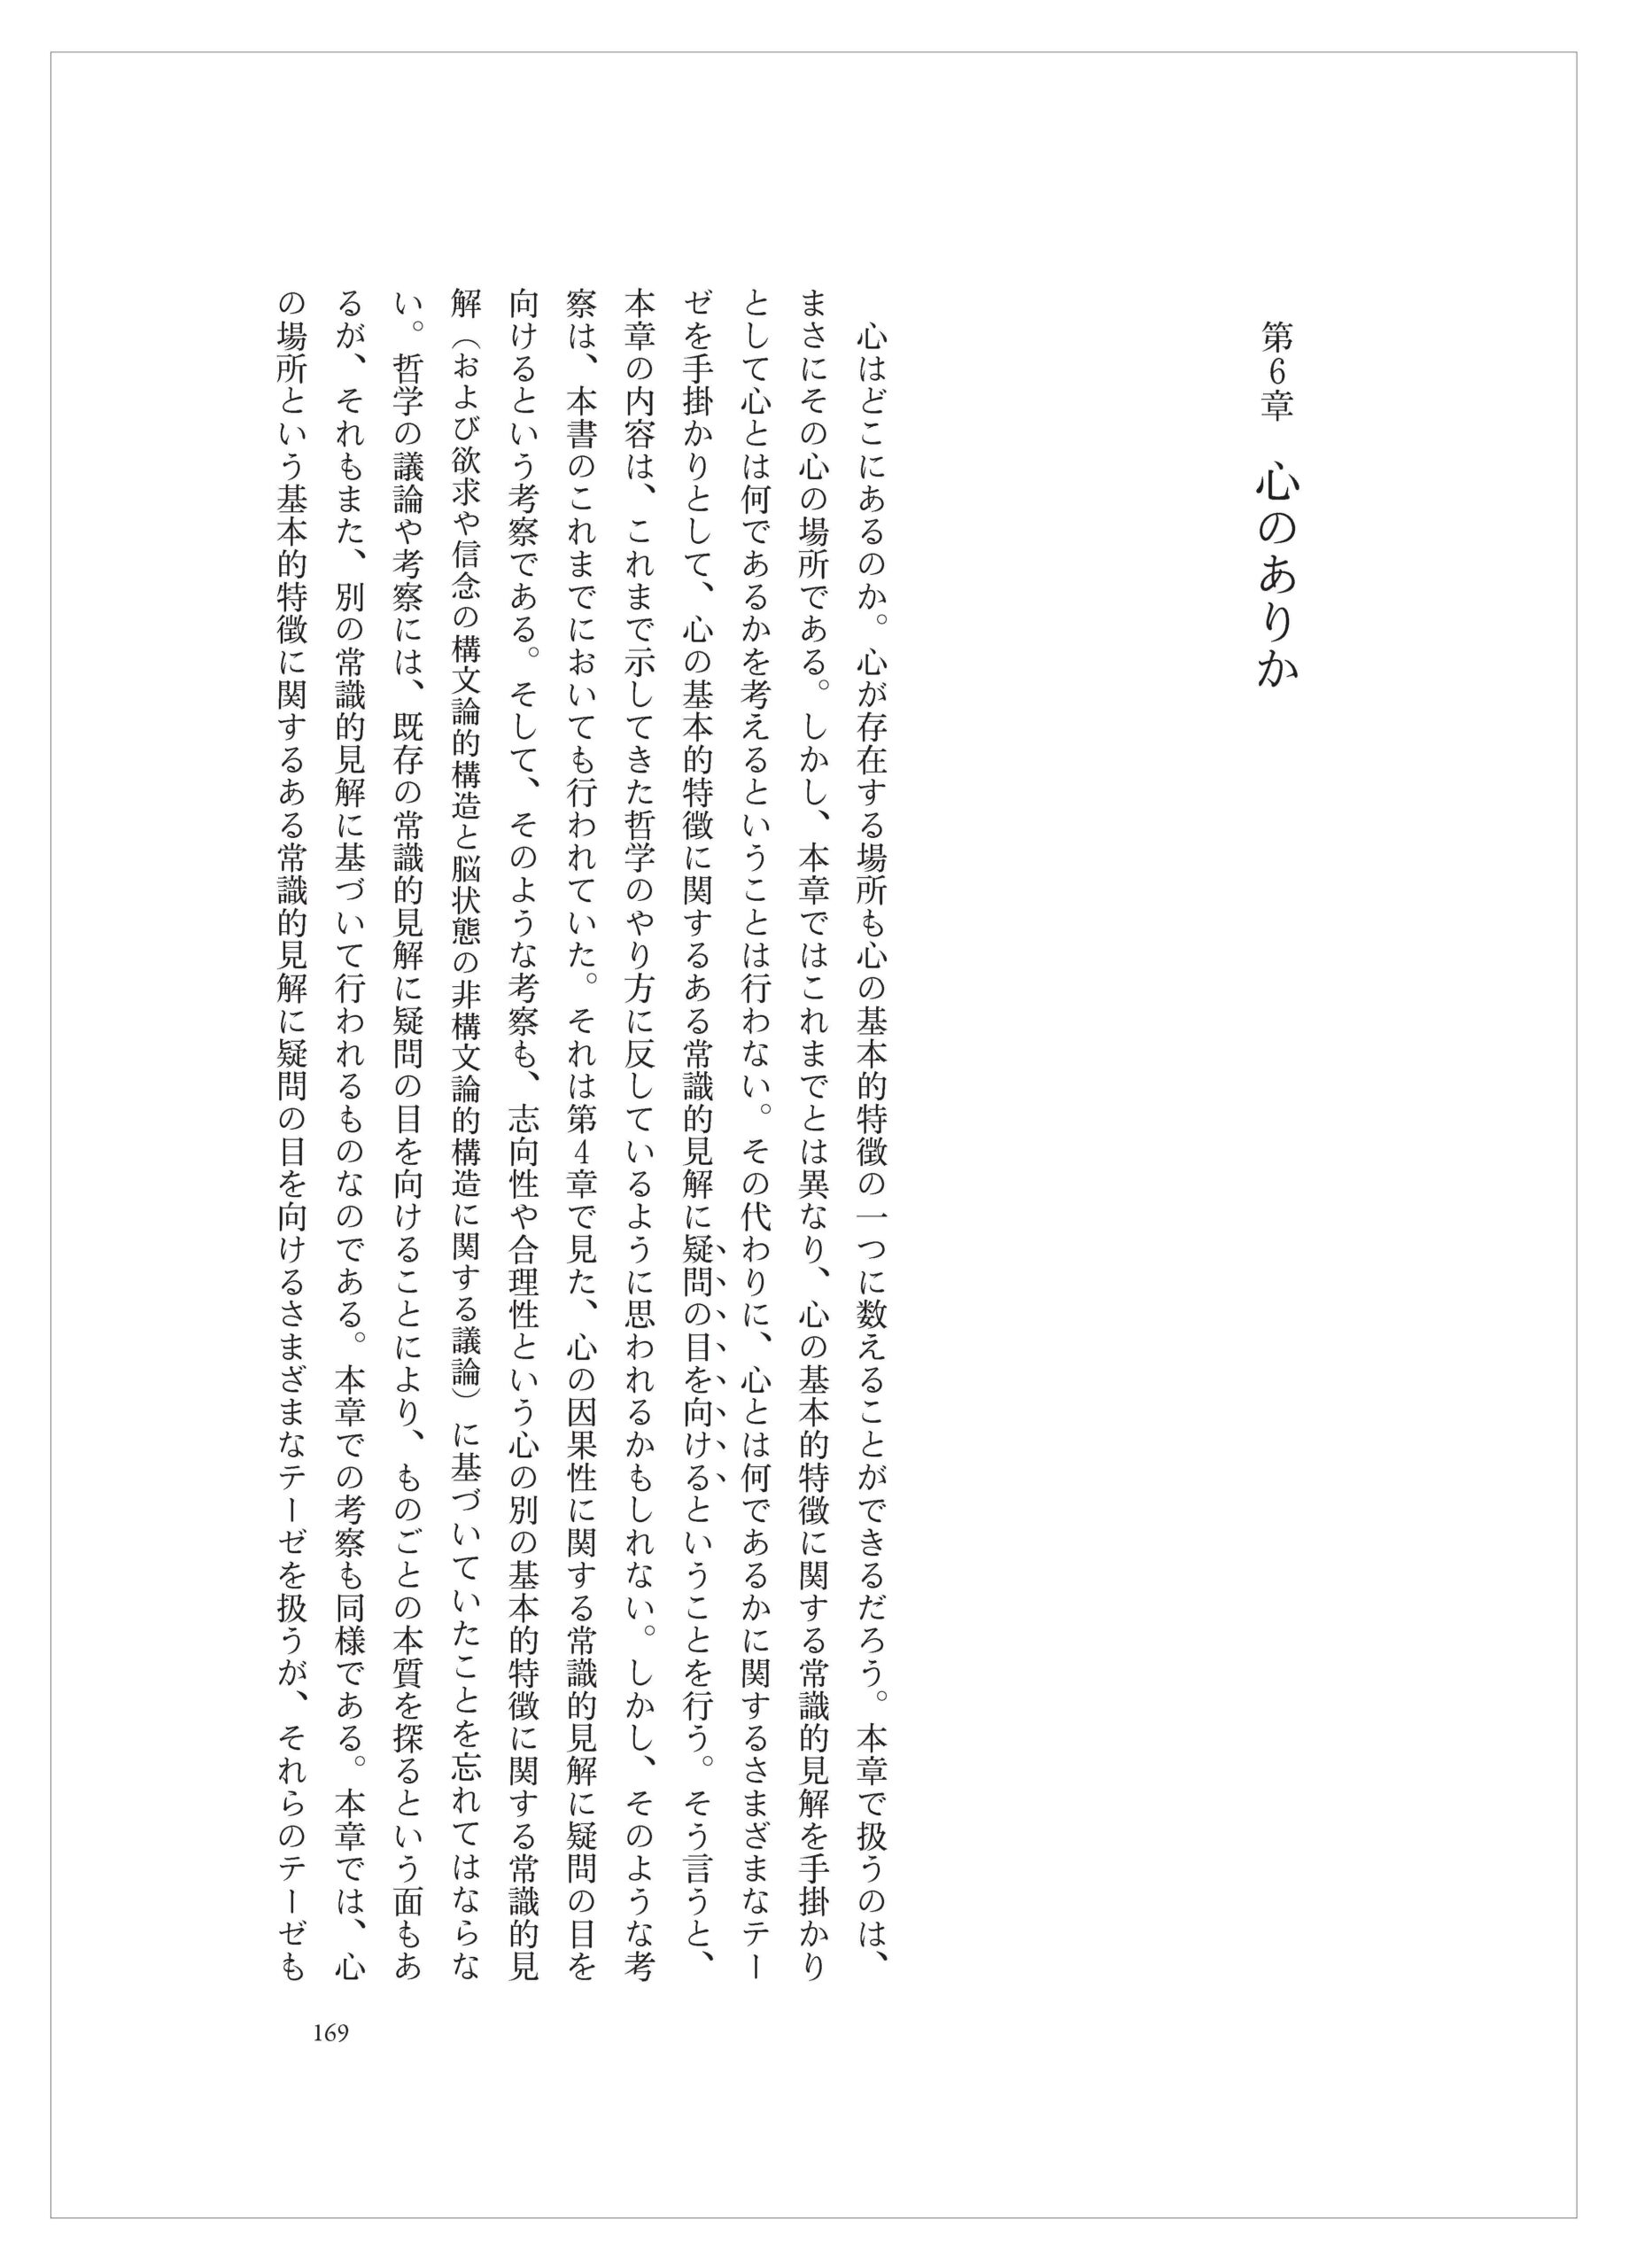 第6章　心のありか
　心はどこにあるのか。心が存在する場所も心の基本的特徴の一つに数えることができるだろう。本章で扱うのは、
まさにその心の場所である。しかし、本章ではこれまでとは異なり、心の基本的特徴に関する常識的見解を手掛かり
として心とは何であるかを考えるということは行わない。その代わりに、心とは何であるかに関するさまざまなテー
ゼを手掛かりとして、心の基本的特徴に関するある常識的見解に疑問の目を向けるということを行う。そう言うと、
本章の内容は、これまで示してきた哲学のやり方に反しているように思われるかもしれない。しかし、そのような考
察は、本書のこれまでにおいても行われていた。それは第4章で見た、心の因果性に関する常識的見解に疑問の目を
向けるという考察である。そして、そのような考察も、志向性や合理性という心の別の基本的特徴に関する常識的見
解（および欲求や信念の構文論的構造と脳状態の非構文論的構造に関する議論）に基づいていたことを忘れてはならな
い。哲学の議論や考察には、既存の常識的見解に疑問の目を向けることにより、ものごとの本質を探るという面もあ
るが、それもまた、別の常識的見解に基づいて行われるものなのである。本章での考察も同様である。本章では、心
の場所という基本的特徴に関するある常識的見解に疑問の目を向けるさまざまなテーゼを扱うが、それらのテーゼも
169